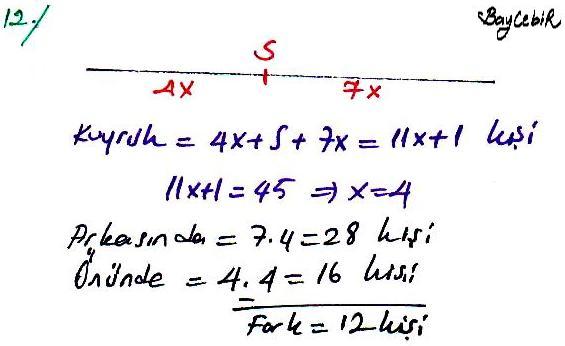 12./ BayCebiR
S
4x 7x
Kuyruk = 4x + S + 7x = 11x+1 kişi
11x+1 = 45 ⇒ x=4
Arkasında = 7.4 = 28 kişi
Önünde = 4.4 = 16 kişi
Fark = 12 kişi